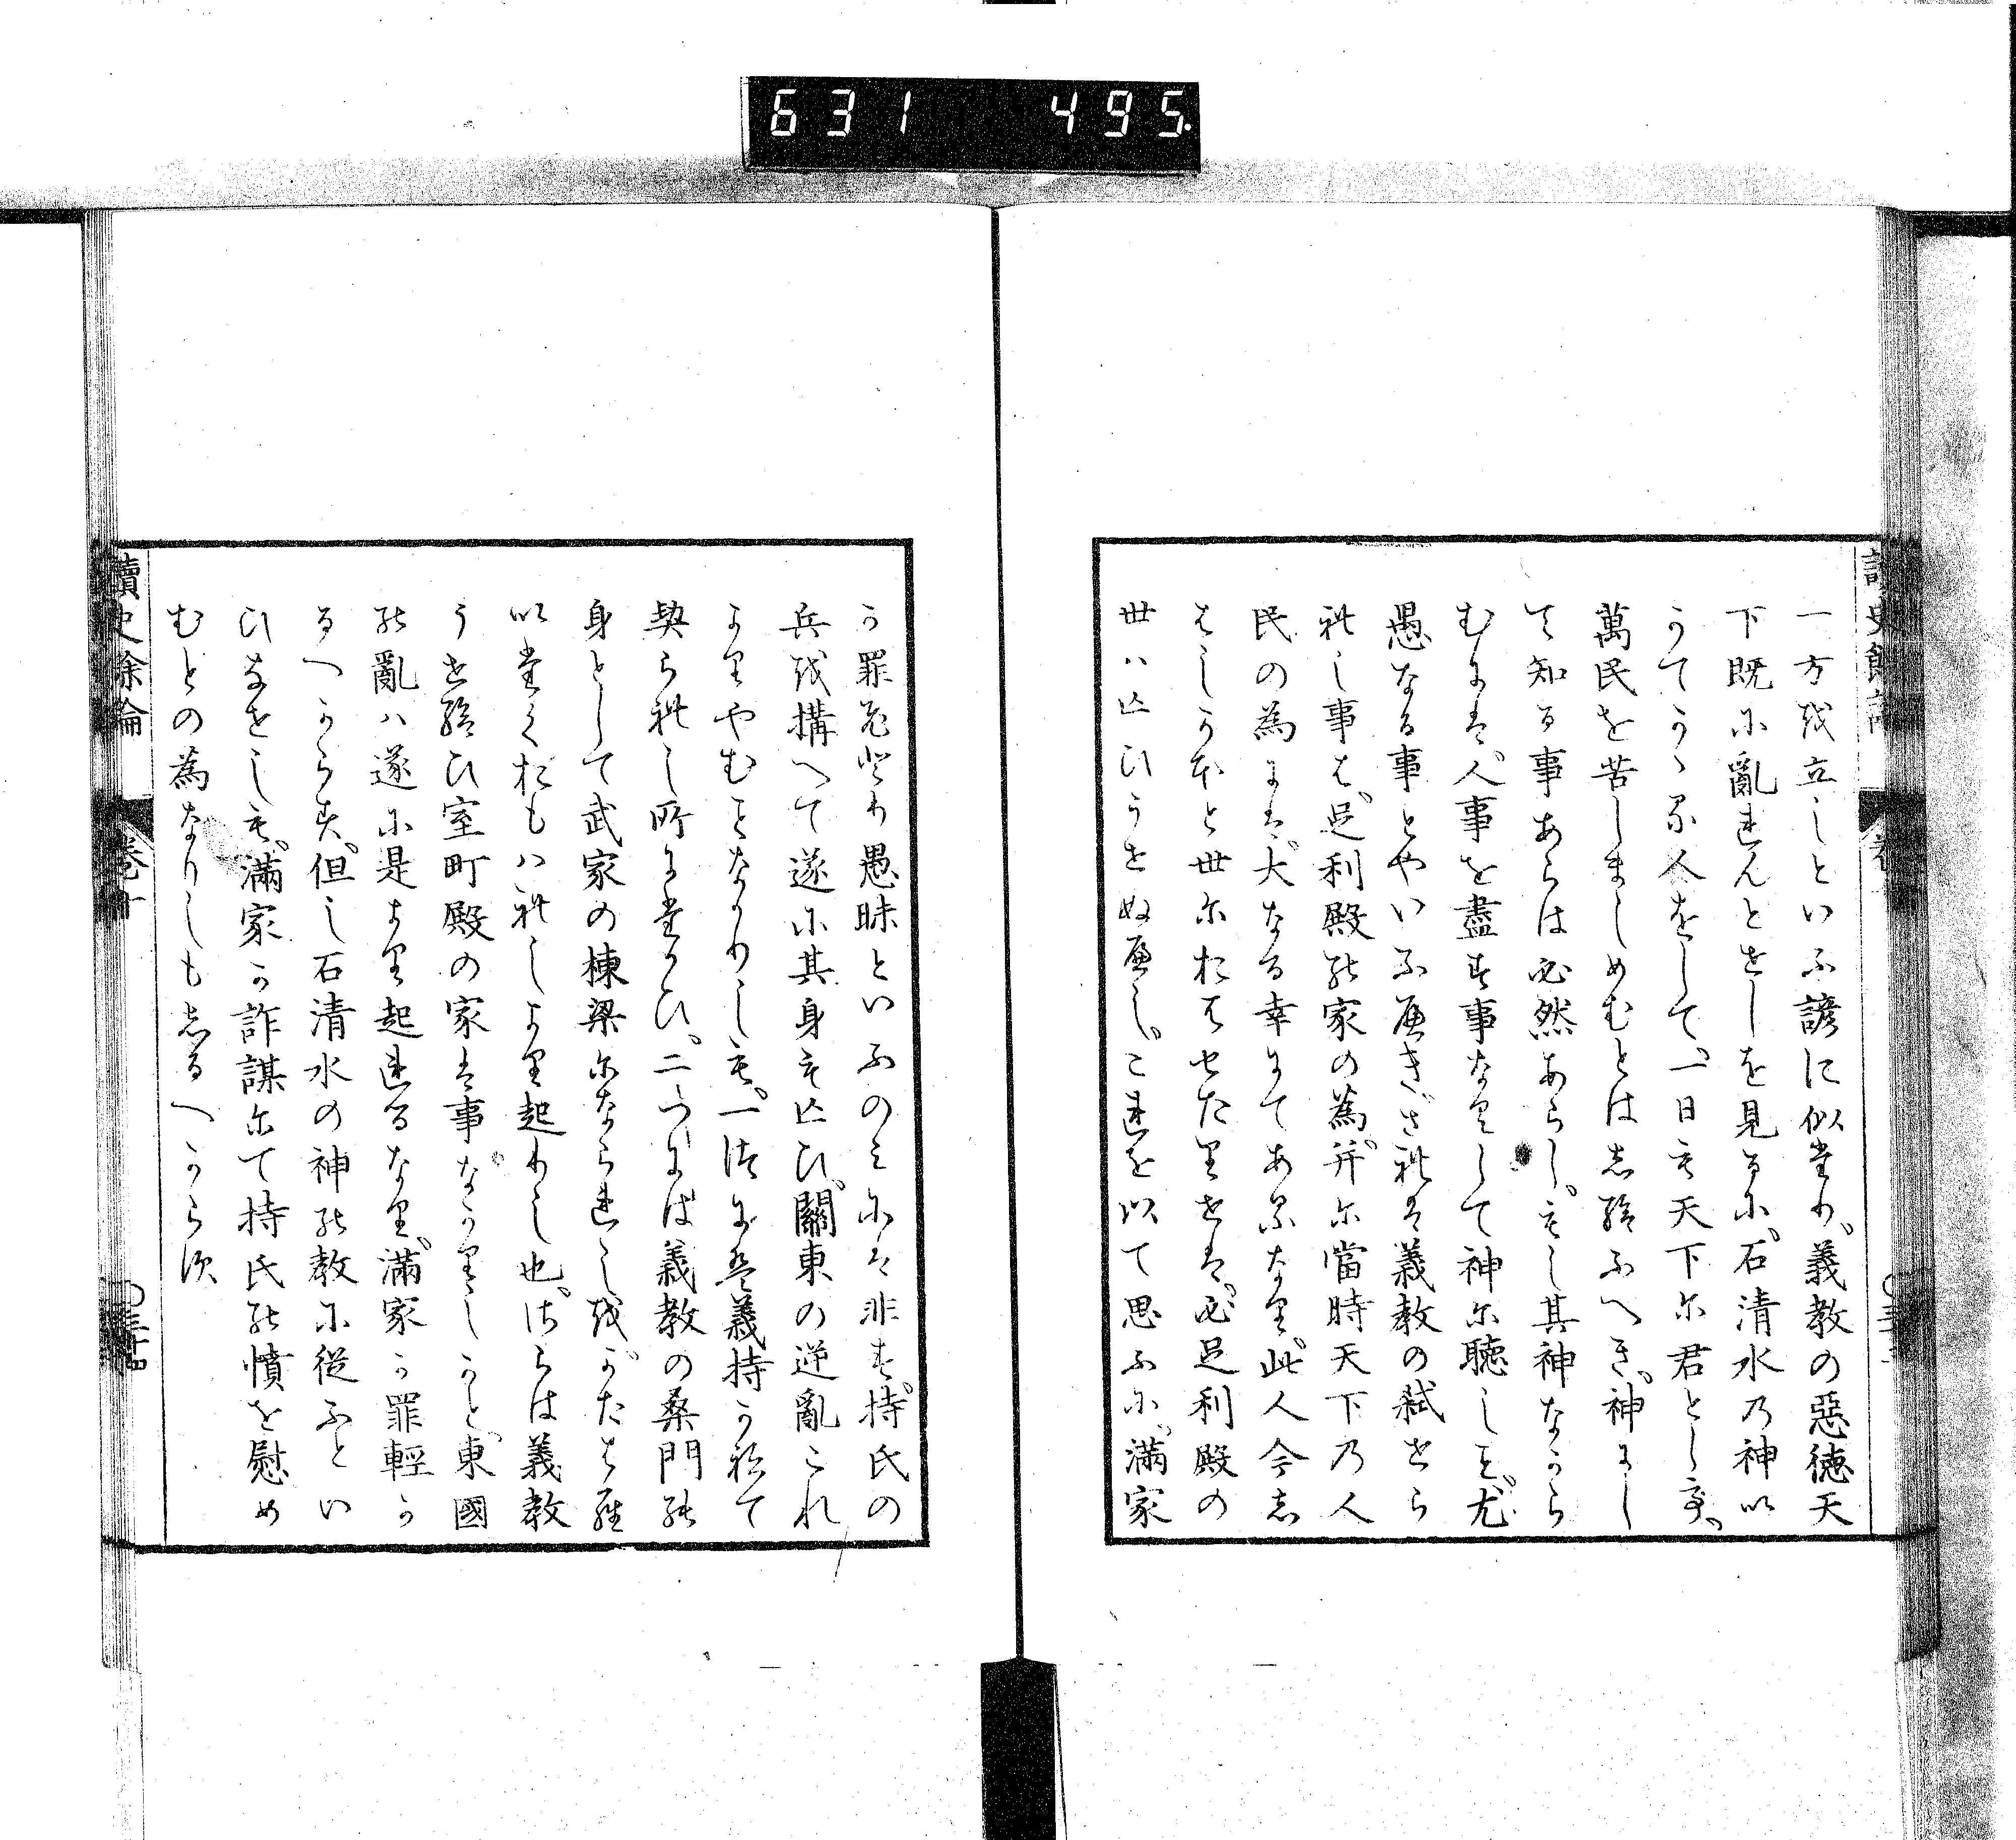 631 495
讀史餘論
一方を立しといふ諺に似たり、義教の惡徳天
下既に亂れんとせしを見るに、石清水の神い
かてかゝる人をして、一日も天下に君として、
萬民を苦しましめむとは志給ふへき、神にし
て知る事あらは必然あらし、もし其神なから
むには、人事を盡す事なくして神に聽しを、尤
愚なる事とやいふへき、されは義教の弑せら
れし事は、足利殿の家の爲、并に當時天下の人
民の為には、大なる幸にてあるなり、此人今志
はしかほと世におはせたりせは、必足利殿の
世ハ亡ひうせぬへし、これを以て思ふに、滿家
か罪たゝ愚昧といふのミには非す、持氏の
兵を構へて遂に其身も亡ひ、關東の逆亂これ
よりやむことなかりしも、一つには義持かねて
契られし所にたかひ、二つには義教の桑門の
身として武家の棟梁になられしを、かたはら
いたくおもはれしより起りし也、さらは義教
うせ給ひ室町殿の家は事なかりしかと、東國
の亂ハ遂に是より起れるなり、滿家か罪輕か
るへからす、但し石清水の神の教に從ふとい
ひなせしも、滿家か詐謀にて持氏の憤を慰め
むとの為なりしも志るへからす
讀史餘論 卷十 三十四